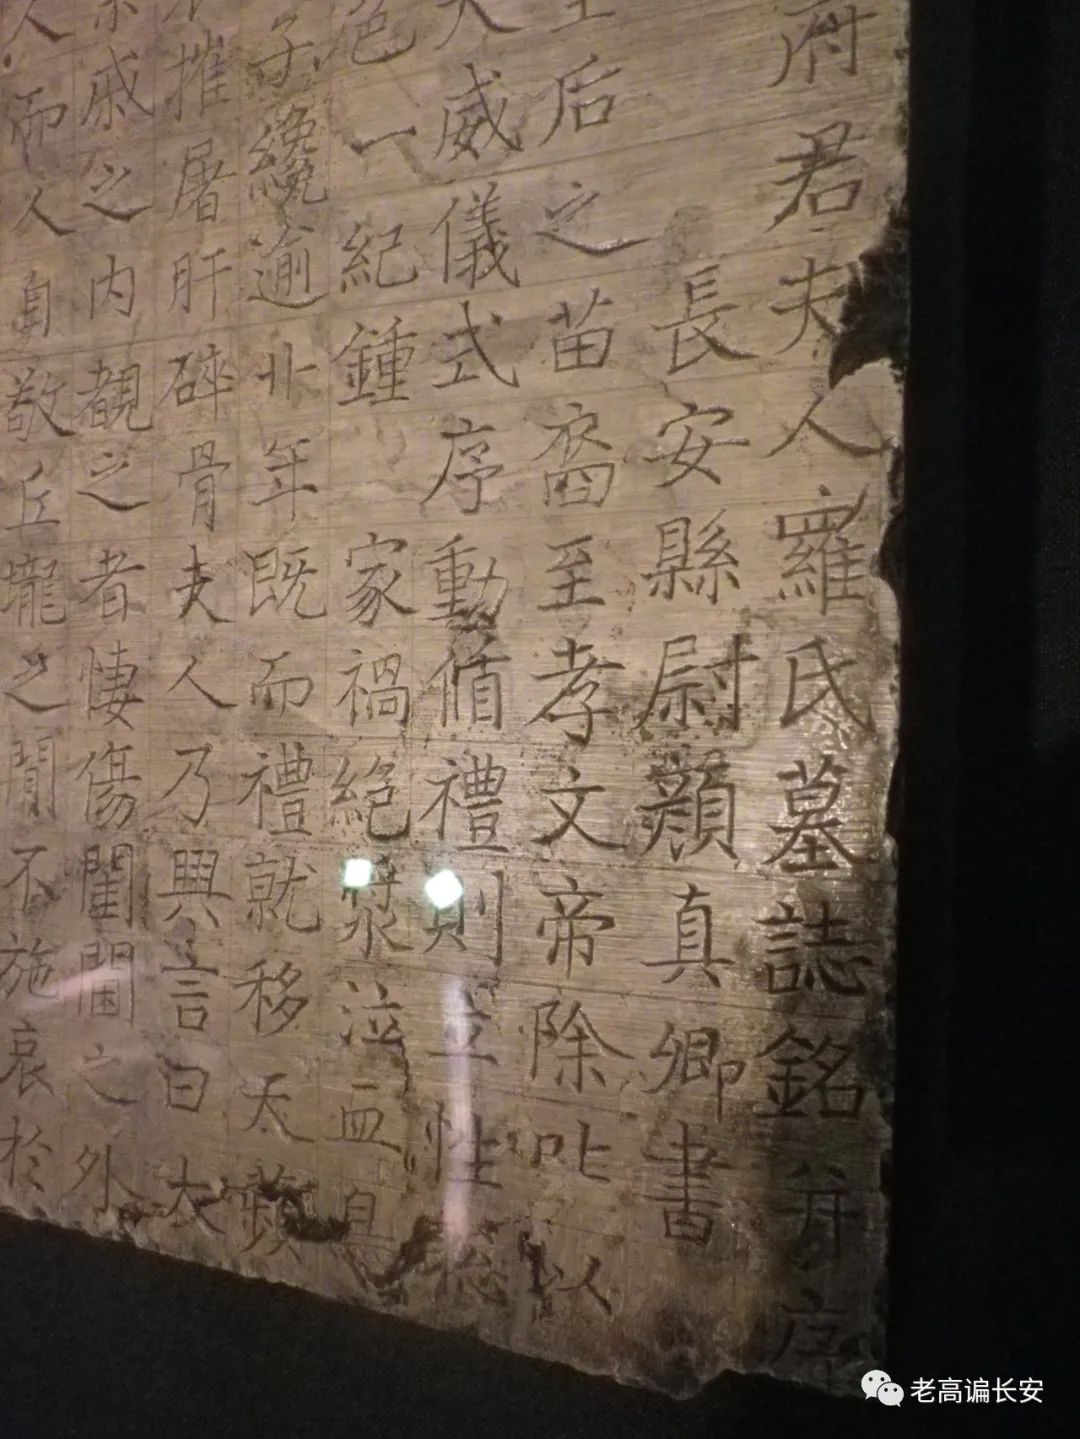 府君夫人羅氏墓誌銘并序
長安縣尉顏真卿書
后之苗裔至孝文帝除叱以
威儀式序動循禮則立性聰
色一紀鍾家禍絕漿泣血
子纔逾卝年既而禮就移天蘋
摧屠肝碎骨夫人乃興言曰大
戚之內覩之者悽傷閨閫之外
人而人自敬丘壠之間不施哀於
老高谝长安